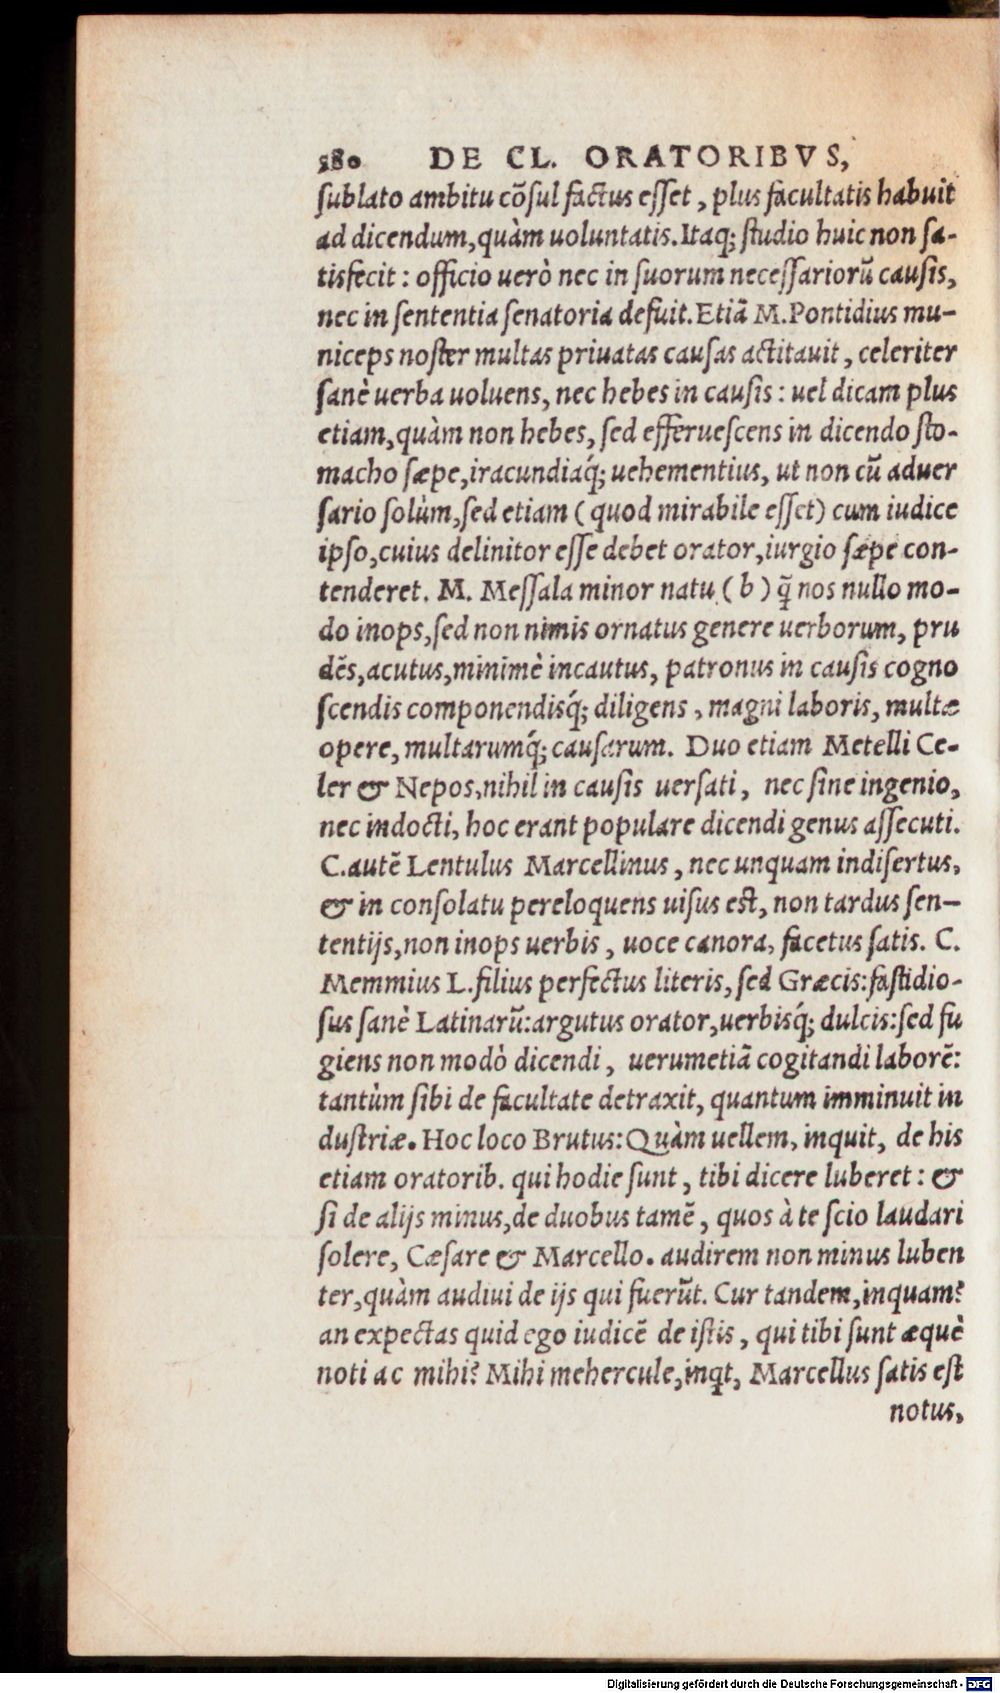 380 DE CL. ORATORIBVS,
ſublato ambitu cõſul factus eſſet, plus facultatis habuit
ad dicendum, quàm uoluntatis. Itaq; ſtudio huic non ſa-
tisfecit: officio uerò nec in ſuorum neceſſariorũ cauſis,
nec in ſententia ſenatoria defuit. Etiã M. Pontidius mu-
niceps noſter multas priuatas cauſas actitauit, celeriter
ſanè uerba uoluens, nec hebes in cauſis: uel dicam plus
etiam, quàm non hebes, ſed efferueſcens in dicendo ſto-
macho ſæpe, iracundiaq́; uehementius, ut non cũ aduer
ſario ſolùm, ſed etiam (quod mirabile eſſet) cum iudice
ipſo, cuius delinitor eſſe debet orator, iurgio ſæpe con-
tenderet. M. Meſſala minor natu (b) q̃ nos nullo mo-
do inops, ſed non nimis ornatus genere uerborum, pru
dẽs, acutus, minimè incautus, patronus in cauſis cogno
ſcendis componendisq́; diligens, magni laboris, multæ
opere, multarumq́; cauſarum. Duo etiam Metelli Ce-
ler & Nepos, nihil in cauſis uerſati, nec ſine ingenio,
nec indocti, hoc erant populare dicendi genus aſſecuti.
C. autẽ Lentulus Marcellinus, nec unquam indiſertus,
& in conſolatu pereloquens uiſus eſt, non tardus ſen-
tentijs, non inops uerbis, uoce canora, facetus ſatis. C.
Memmius L. filius perfectus literis, ſed Græcis: faſtidio-
ſus ſanè Latinarũ: argutus orator, uerbisq́; dulcis: ſed fu
giens non modò dicendi, uerumetiã cogitandi laborẽ:
tantùm ſibi de facultate detraxit, quantum imminuit in
duſtriæ. Hoc loco Brutus: Quàm uellem, inquit, de his
etiam oratorib. qui hodie ſunt, tibi dicere luberet: &
ſi de alijs minus, de duobus tamẽ, quos à te ſcio laudari
ſolere, Cæſare & Marcello. audirem non minus luben
ter, quàm audiui de ijs qui fuerũt. Cur tandem, inquam?
an expectas quid ego iudicẽ de iſtis, qui tibi ſunt æquè
noti ac mihi? Mihi mehercule, inqt, Marcellus ſatis eſt
notus,
Digitalisierung gefördert durch die Deutsche Forschungsgemeinschaft - DFG